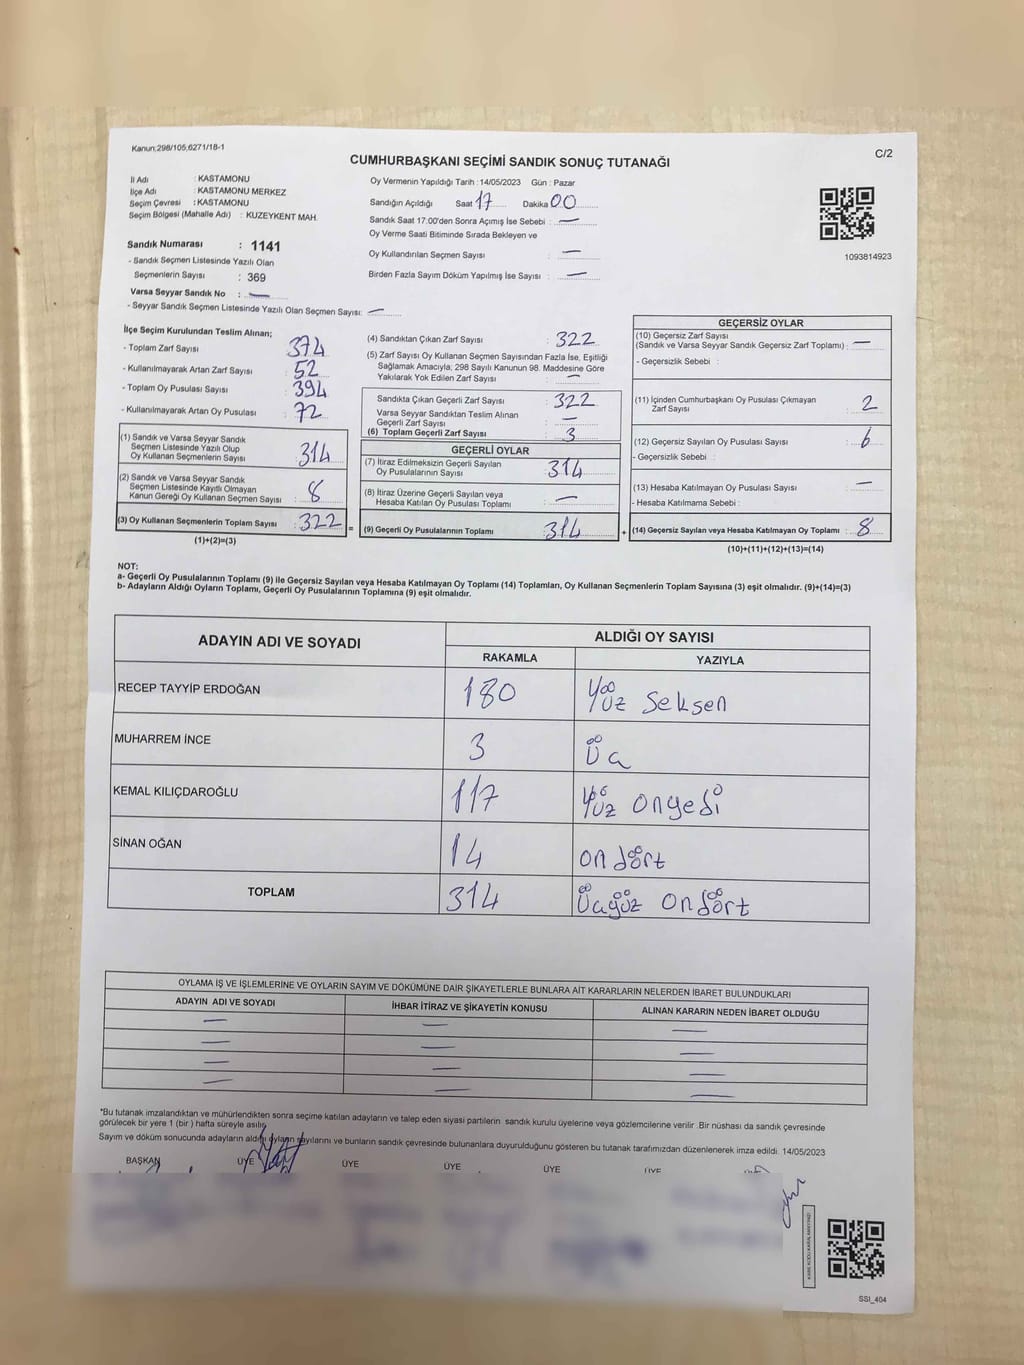 Kanun:298/105,6271/18-1
C/2
CUMHURBAŞKANI SEÇİMİ SANDIK SONUÇ TUTANAĞI
İl Adı : KASTAMONU
İlçe Adı : KASTAMONU MERKEZ
Seçim Çevresi : KASTAMONU
Seçim Bölgesi (Mahalle Adı) : KUZEYKENT MAH.
Sandık Numarası : 1141
- Sandık Seçmen Listesinde Yazılı Olan
Seçmenlerin Sayısı : 369
Varsa Seyyar Sandık No : —
- Seyyar Sandık Seçmen Listesinde Yazılı Olan Seçmen Sayısı: —
Oy Vermenin Yapıldığı Tarih : 14/05/2023 Gün : Pazar
Sandığın Açıldığı Saat 17 Dakika 00
Sandık Saat 17:00'den Sonra Açımış İse Sebebi : —
Oy Verme Saati Bitiminde Sırada Bekleyen ve
Oy Kullandırılan Seçmen Sayısı : —
Birden Fazla Sayım Döküm Yapılmış İse Sayısı : —
1093814923
İlçe Seçim Kurulundan Teslim Alınan;
- Toplam Zarf Sayısı : 374
- Kullanılmayarak Artan Zarf Sayısı : 52
- Toplam Oy Pusulası Sayısı : 394
- Kullanılmayarak Artan Oy Pusulası : 72
(1) Sandık ve Varsa Seyyar Sandık
Seçmen Listesinde Yazılı Olup
Oy Kullanan Seçmenlerin Sayısı : 314
(2) Sandık ve Varsa Seyyar Sandık
Seçmen Listesinde Kayıtlı Olmayan
Kanun Gereği Oy Kullanan Seçmen Sayısı : 8
(3) Oy Kullanan Seçmenlerin Toplam Sayısı : 322
(1)+(2)=(3)
=
(4) Sandıktan Çıkan Zarf Sayısı : 322
(5) Zarf Sayısı Oy Kullanan Seçmen Sayısından Fazla İse, Eşitliği
Sağlamak Amacıyla; 298 Sayılı Kanunun 98. Maddesine Göre
Yakılarak Yok Edilen Zarf Sayısı : —
Sandıkta Çıkan Geçerli Zarf Sayısı : 322
Varsa Seyyar Sandıktan Teslim Alınan
Geçerli Zarf Sayısı : —
(6) Toplam Geçerli Zarf Sayısı : 3
GEÇERLİ OYLAR
(7) İtiraz Edilmeksizin Geçerli Sayılan
Oy Pusulalarının Sayısı : 314
(8) İtiraz Üzerine Geçerli Sayılan veya
Hesaba Katılan Oy Pusulası Toplamı : —
(9) Geçerli Oy Pusulalarının Toplamı : 314
+
GEÇERSİZ OYLAR
(10) Geçersiz Zarf Sayısı
(Sandık ve Varsa Seyyar Sandık Geçersiz Zarf Toplamı) : —
- Geçersizlik Sebebi :
(11) İçinden Cumhurbaşkanı Oy Pusulası Çıkmayan
Zarf Sayısı : 2
(12) Geçersiz Sayılan Oy Pusulası Sayısı : 6
- Geçersizlik Sebebi :
(13) Hesaba Katılmayan Oy Pusulası Sayısı : —
- Hesaba Katılmama Sebebi :
(14) Geçersiz Sayılan veya Hesaba Katılmayan Oy Toplamı : 8
(10)+(11)+(12)+(13)=(14)
NOT:
a- Geçerli Oy Pusulalarının Toplamı (9) ile Geçersiz Sayılan veya Hesaba Katılmayan Oy Toplamı (14) Toplamları, Oy Kullanan Seçmenlerin Toplam Sayısına (3) eşit olmalıdır. (9)+(14)=(3)
b- Adayların Aldığı Oyların Toplamı, Geçerli Oy Pusulalarının Toplamına (9) eşit olmalıdır.
ADAYIN ADI VE SOYADI
ALDIĞI OY SAYISI
RAKAMLA YAZIYLA
RECEP TAYYİP ERDOĞAN 180 Yüz Seksen
MUHARREM İNCE 3 Üç
KEMAL KILIÇDAROĞLU 117 Yüz onyedi
SİNAN OĞAN 14 on dört
TOPLAM 314 Üçyüz Ondört
OYLAMA İŞ VE İŞLEMLERİNE VE OYLARIN SAYIM VE DÖKÜMÜNE DAİR ŞİKAYETLERLE BUNLARA AİT KARARLARIN NELERDEN İBARET BULUNDUKLARI
ADAYIN ADI VE SOYADI İHBAR İTİRAZ VE ŞİKAYETİN KONUSU ALINAN KARARIN NEDEN İBARET OLDUĞU
— — —
— — —
— — —
— — —
*Bu tutanak imzalandıktan ve mühürlendikten sonra seçime katılan adayların ve talep eden siyasi partilerin sandık kurulu üyelerine veya gözlemcilerine verilir .Bir nüshası da sandık çevresinde
görülecek bir yere 1 (bir ) hafta süreyle asılır.
Sayım ve döküm sonucunda adayların aldığı oyların sayılarını ve bunların sandık çevresinde bulunanlara duyurulduğunu gösteren bu tutanak tarafımızdan düzenlenerek imza edildi. 14/05/2023
BAŞKAN ÜYE ÜYE ÜYE ÜYE ÜYE
SSI_404